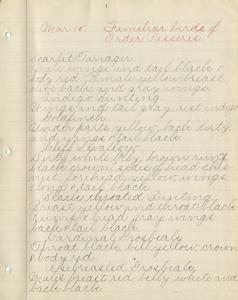 Mar 10 Familiar birds of
Order Passeres
Scarlet Tanager
Male wings and tail black &
body red, female yellow breast
olive back and gray wings
Indigo Bunting
Wings and tail gray rest indigo
Goldfinch
Under parts yellow, back dusty
and wings & tail black
Cliff Swallow
Dirty white belly, brown rump
black crown sides of head chest-
nut forehead yellow, wings
long & tail black
Black throated Bunting
Breast yellow and throat black
Rump & head gray wings
back & tail black
Cardinal Grosbeak
Throat black, bill yellow, crown
& body red
Rosebreasted Grosbeak
Male breast red, belly white and
back black